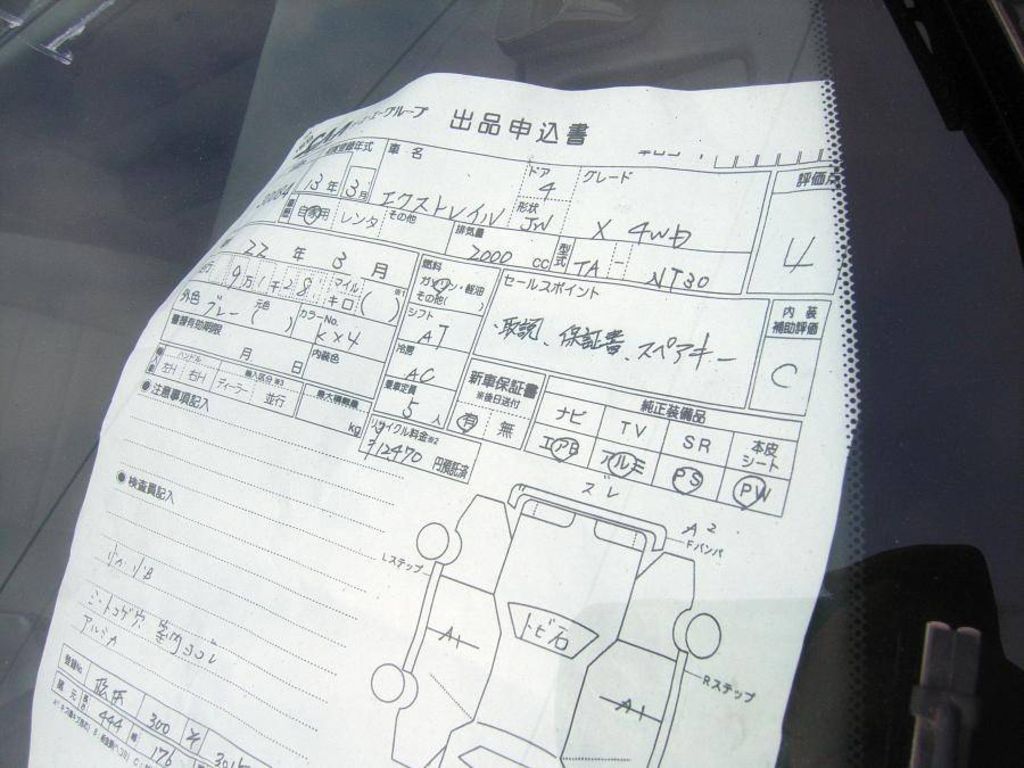 グループ 出品申込書
年式 車名 ドア グレード 評価点
13年 3月 エクストレイル 4 X 4WD 4
形状 JW
自家用 レンタ その他 排気量 2000 cc 型式 TA - NT30
22 年 3 月 燃料 ガソリン・軽油 その他( セールスポイント
9万1千28 マイル キロ ( ) 内装 補助評価
シフト AT ・取説、保証書、スペアキー C
外色 元色 カラーNo.
ブルー ( ) KX4
冷房 AC
書類有効期限 月 日 内装色
乗車定員 5 人 新車保証書 ※後日送付 有 無 純正装備品
ハンドル 左H 右H 輸入区分※3 ディーラー 並行 最大積載量 kg
ナビ TV SR 本皮シート
エアB アルミ PS PW
リサイクル料金※2
¥12470 円預託済
●注意事項記入
ズレ
A2
Fバンパ
●検査員記入
Lステップ
トビ石
A1
Rステップ
A1
シートコゲ穴 室内ヨゴレ
アルミA
登録No. 300
諸元 444 176